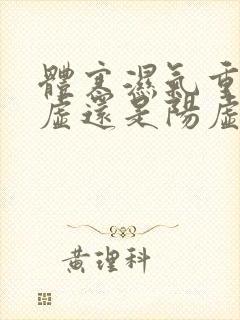 體寒濕氣重
虛還是陽虛
黃理科